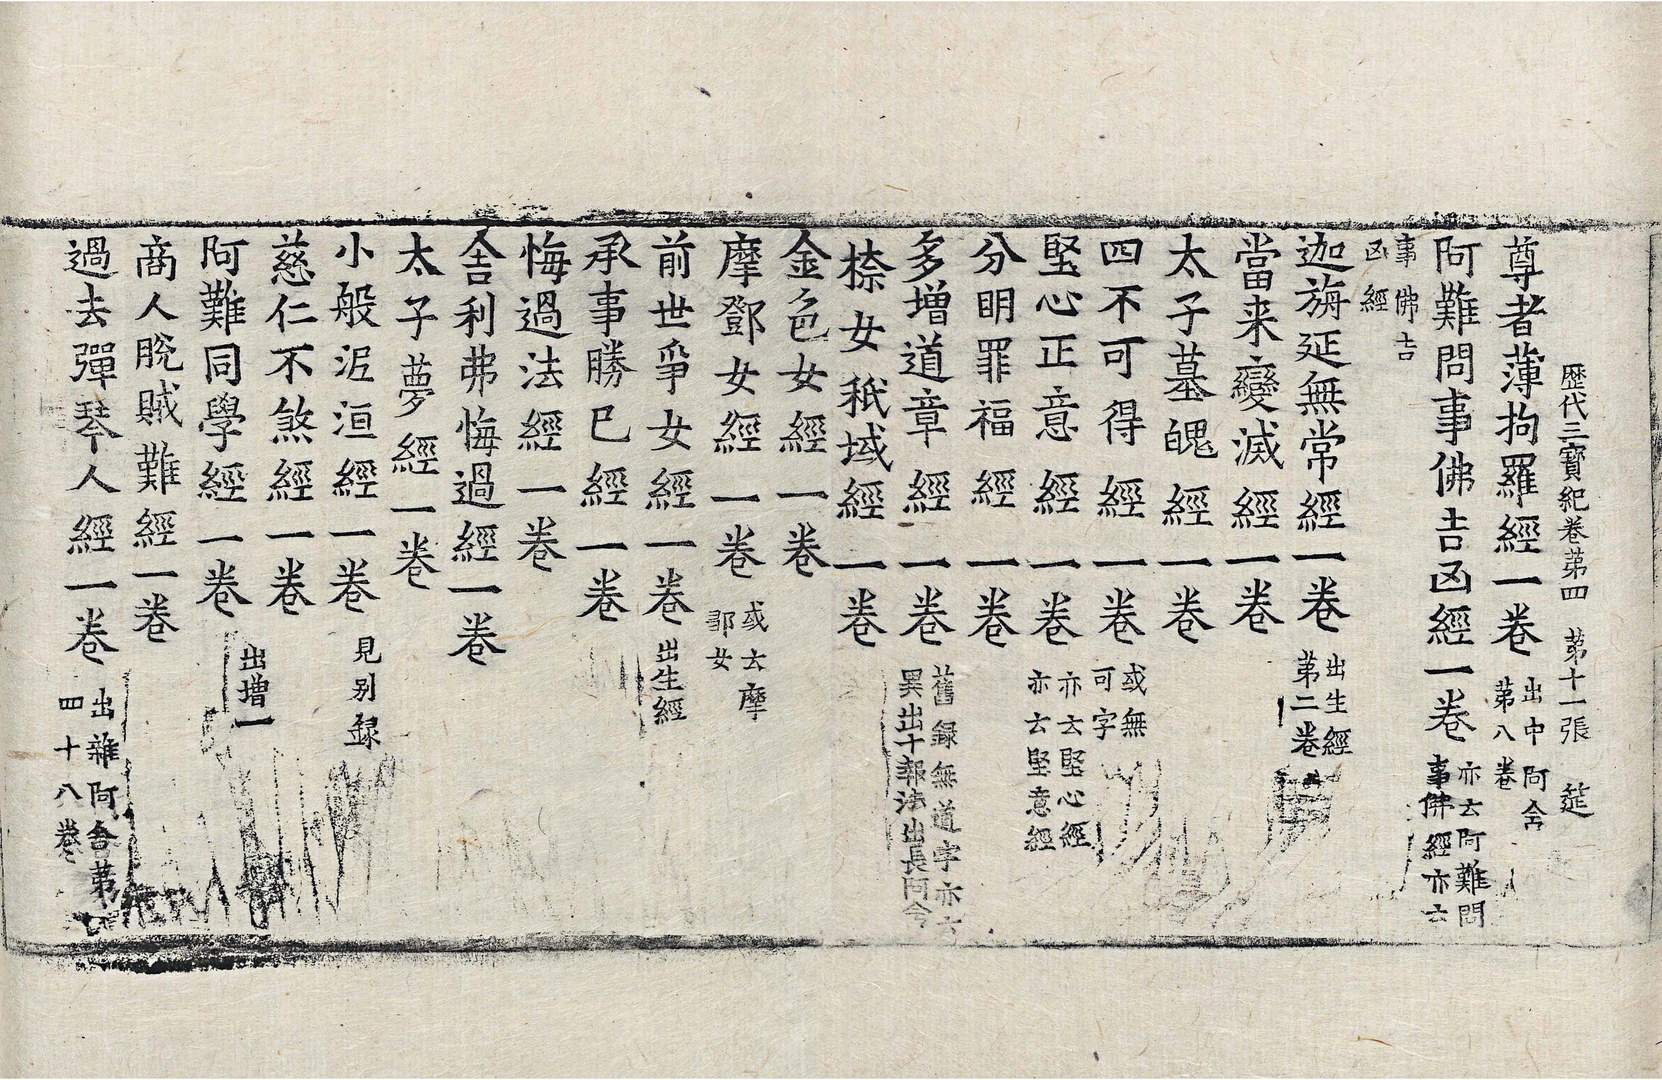 歷代三寶紀卷第四 第十一張 筵
尊者薄拘羅經一卷 出中阿含
第八卷
阿難問事佛吉凶經一卷 亦云阿難問
事佛經亦云
事佛吉
凶經
迦旃延無常經一卷 出生經
第二卷
當来變滅經一卷
太子墓魄經一卷
四不可得經一卷 或無
可字
堅心正意經一卷 亦云堅心經
亦云堅意經
分明罪福經一卷
多增道章經一卷 舊録無道字亦云
異出十報法出長阿含
㮈女秖域經一卷
金色女經一卷
摩鄧女經一卷 或云摩
鄒女
前世爭女經一卷 出生經
承事勝已經一卷
悔過法經一卷
舍利弗悔過經一卷
太子夢經一卷
小般泥洹經一卷 見别録
慈仁不煞經一卷
阿難同學經一卷 出增一
商人脫賊難經一卷
過去彈琴人經一卷 出雜阿含第
四十八卷